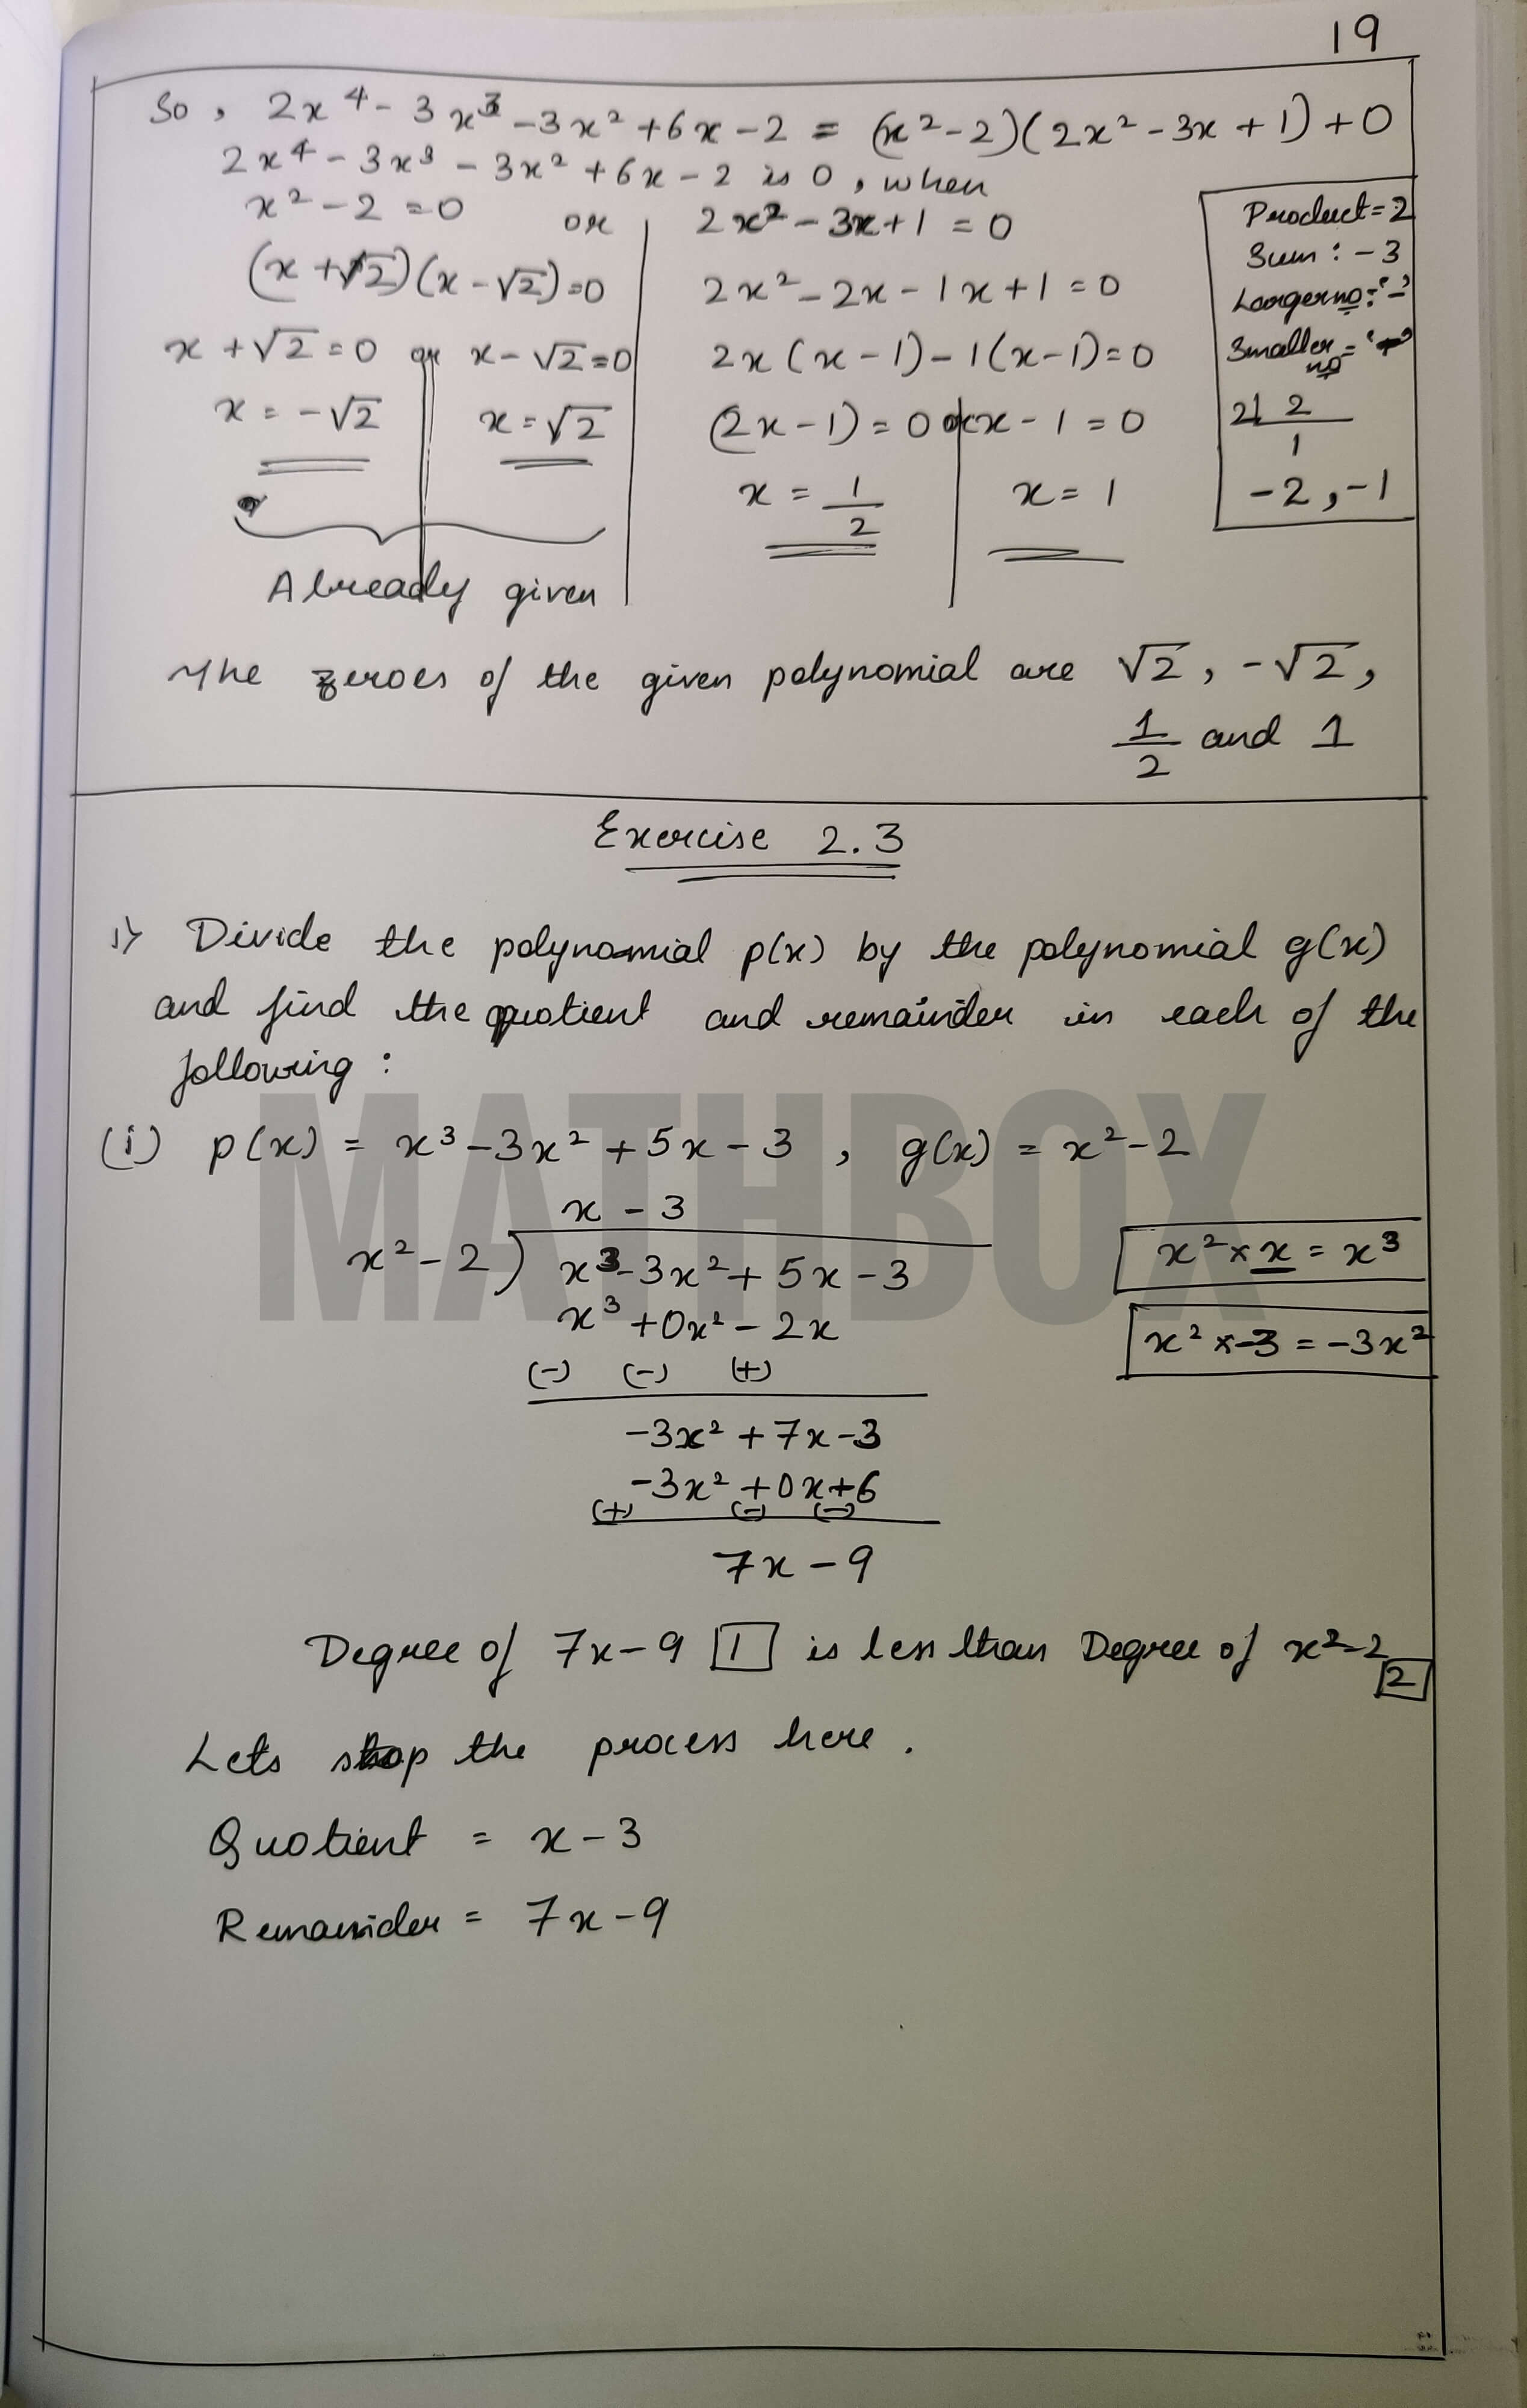 19
So, 2x⁴ - 3x³ - 3x² + 6x - 2 = (x² - 2)(2x² - 3x + 1) + 0
2x⁴ - 3x³ - 3x² + 6x - 2 is 0, when
x² - 2 = 0 or 2x² - 3x + 1 = 0
(x + √2)(x - √2) = 0 2x² - 2x - 1x + 1 = 0
x + √2 = 0 or x - √2 = 0 2x(x - 1) - 1(x - 1) = 0
x = -√2 x = √2 (2x - 1) = 0 or x - 1 = 0
x = 1/2 x = 1
Already given
Product = 2
Sum : -3
Larger no = '-'
Smaller no =
2| 2
1
-2, -1
The zeroes of the given polynomial are √2, -√2,
1/2 and 1
Exercise 2.3
1) Divide the polynomial p(x) by the polynomial g(x)
and find the quotient and remainder in each of the
following :
MATHBOX
(i) p(x) = x³ - 3x² + 5x - 3, g(x) = x² - 2
x - 3
x² - 2 ) x³ - 3x² + 5x - 3
x³ + 0x² - 2x
(-) (-) (+)
-3x² + 7x - 3
-3x² + 0x + 6
(+) (-) (-)
7x - 9
x² × x = x³
x² × -3 = -3x²
Degree of 7x - 9 1 is less than Degree of x² - 2 2
Lets stop the process here.
Quotient = x - 3
Remainder = 7x - 9